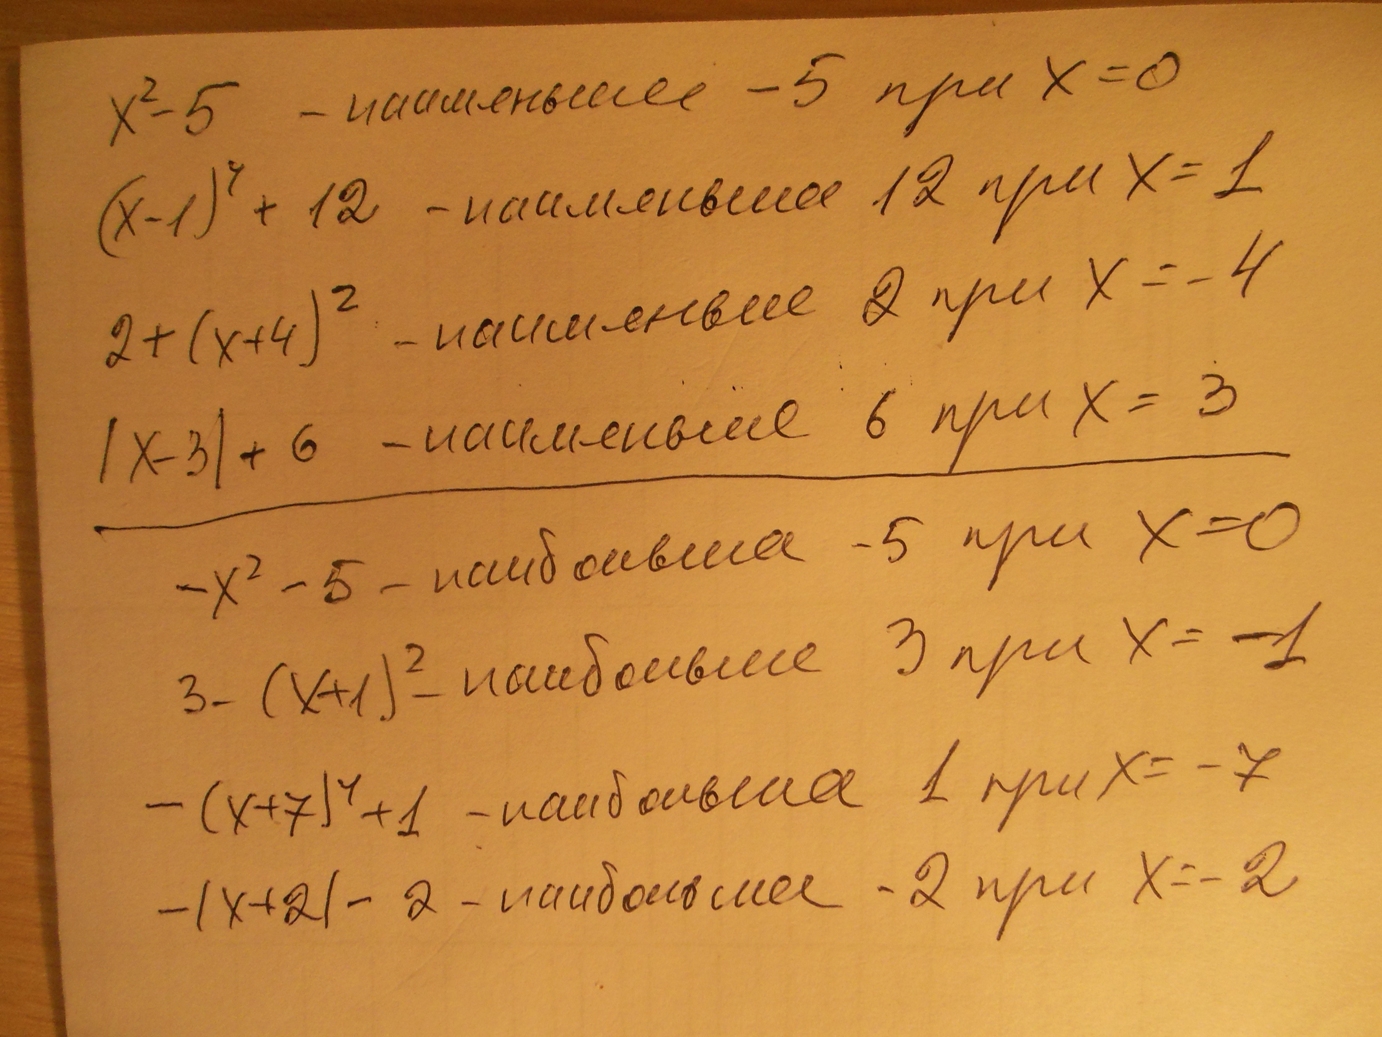 x² - 5 - наименьшее -5 при x = 0
(x-1)⁴ + 12 - наименьшее 12 при x = 1
2 + (x+4)² - наименьшее 2 при x = -4
|x-3| + 6 - наименьшее 6 при x = 3
-x² - 5 - наибольшее -5 при x = 0
3 - (x+1)² - наибольшее 3 при x = -1
-(x+7)⁴ + 1 - наибольшее 1 при x = -7
-|x+2| - 2 - наибольшее -2 при x = -2